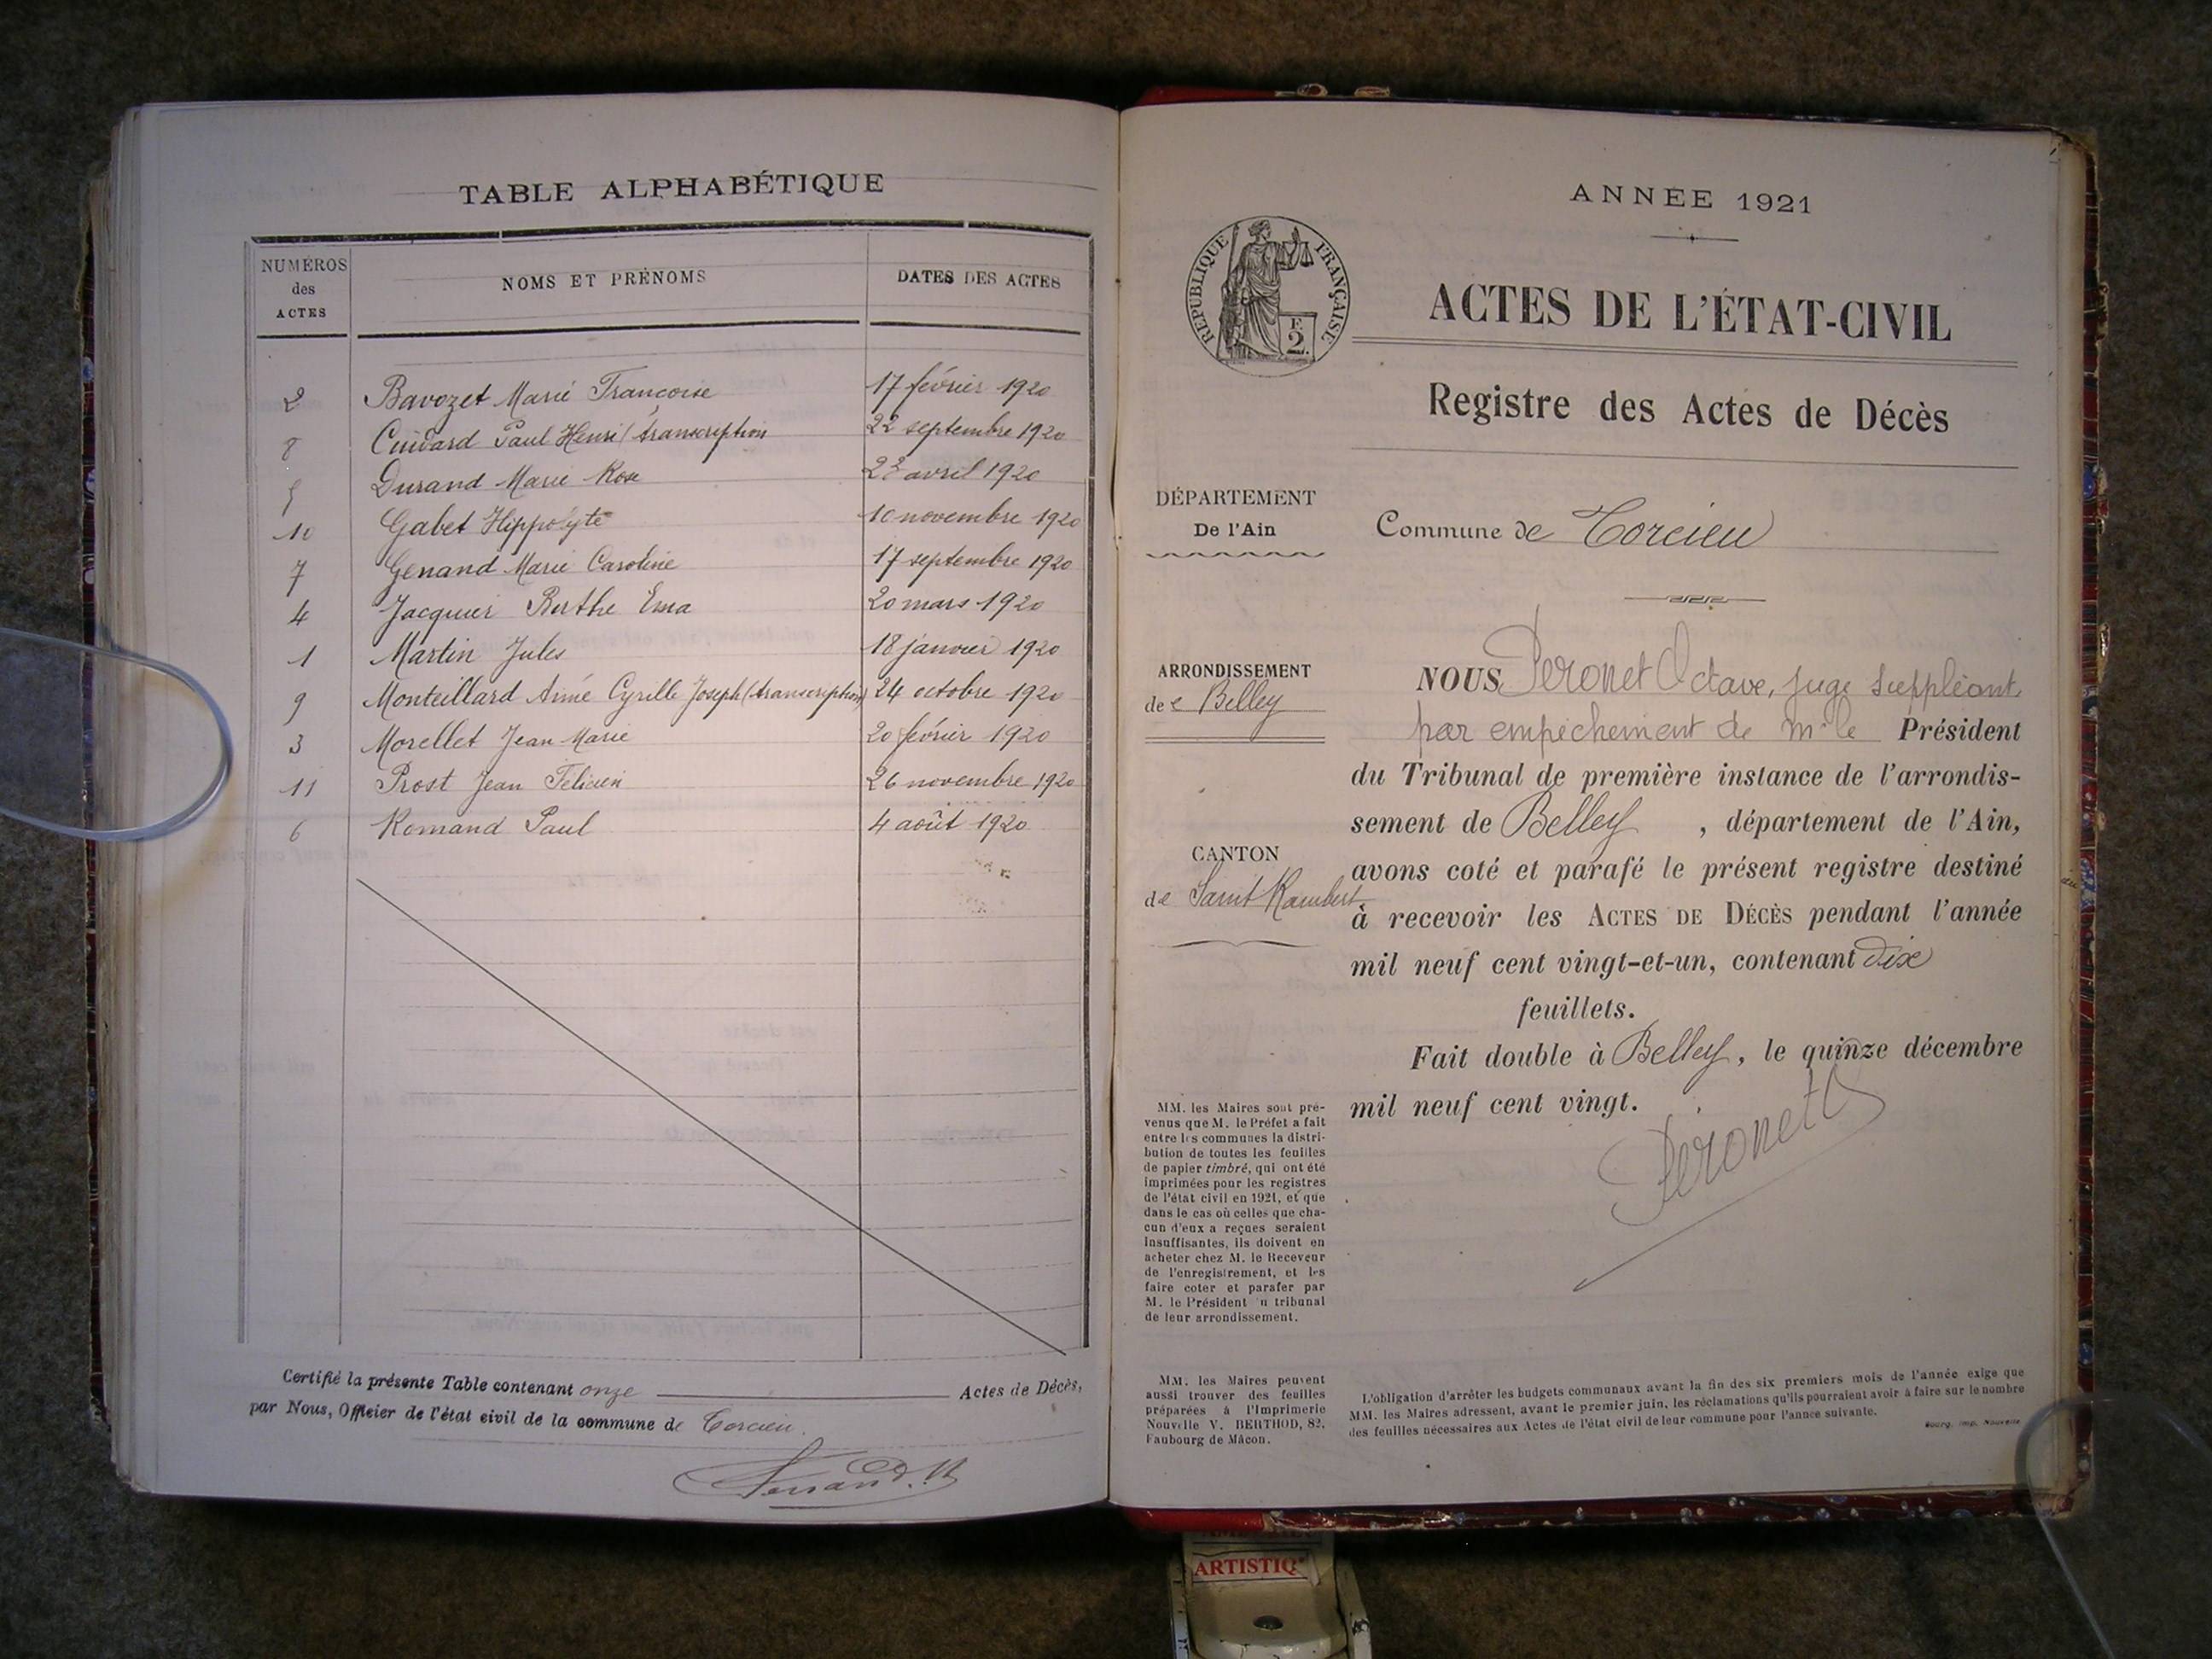 TABLE ALPHABÉTIQUE
NUMÉROS des ACTES
NOMS ET PRÉNOMS
DATES DES ACTES
2 Bavozet Marie Françoise 17 février 1920
8 Paul Henri (transcription 22 septembre 1920
5 Durand Marie Rose 23 avril 1920
10 Gabet Hippolyte 10 novembre 1920
7 Genand Marie Caroline 17 septembre 1920
4 Jacquier Berthe Ema 20 mars 1920
1 Martin Jules 18 janvier 1920
9 Monteillard Aimé Cyrille Joseph (transcription) 24 octobre 1920
3 Morellet Jean Marie 20 février 1920
11 Prost Jean Félicien 26 novembre 1920
6 Romand Paul 4 août 1920
Certifié la présente Table contenant onze Actes de Décès,
par Nous, Officier de l'état civil de la commune de Torcieu.
ANNÉE 1921
RÉPUBLIQUE FRANÇAISE
2
F.
ACTES DE L'ÉTAT-CIVIL
Registre des Actes de Décès
DÉPARTEMENT
De l'Ain
Commune de Torcieu
ARRONDISSEMENT
de Belley
CANTON
de Saint Rambert
NOUS Peronet Octave, juge suppléant,
par empêchement de Mr le Président
du Tribunal de première instance de l'arrondis-
sement de Belley, département de l'Ain,
avons coté et parafé le présent registre destiné
à recevoir les ACTES DE DÉCÈS pendant l'année
mil neuf cent vingt-et-un, contenant dix
feuillets.
Fait double à Belley, le quinze décembre
mil neuf cent vingt.
Peronet
MM. les Maires sont pré-
venus que M. le Préfet a fait
entre les communes la distri-
bution de toutes les feuilles
de papier timbré, qui ont été
imprimées pour les registres
de l'état civil en 1921, et que
dans le cas où celles que cha-
cun d'eux a reçues seraient
insuffisantes, ils doivent en
acheter chez M. le Receveur
de l'enregistrement, et les
faire coter et parafer par
M. le Président u tribunal
de leur arrondissement.
MM. les Maires peuvent
aussi trouver des feuilles
préparées à l'Imprimerie
Nouvelle V. BERTHOD, 82,
Faubourg de Mâcon.
L'obligation d'arrêter les budgets communaux avant la fin des six premiers mois de l'année exige que
MM. les Maires adressent, avant le premier juin, les réclamations qu'ils pourraient avoir à faire sur le nombre
des feuilles nécessaires aux Actes de l'état civil de leur commune pour l'année suivante.
Bourg, Imp. Nouvelle
ARTISTIQ